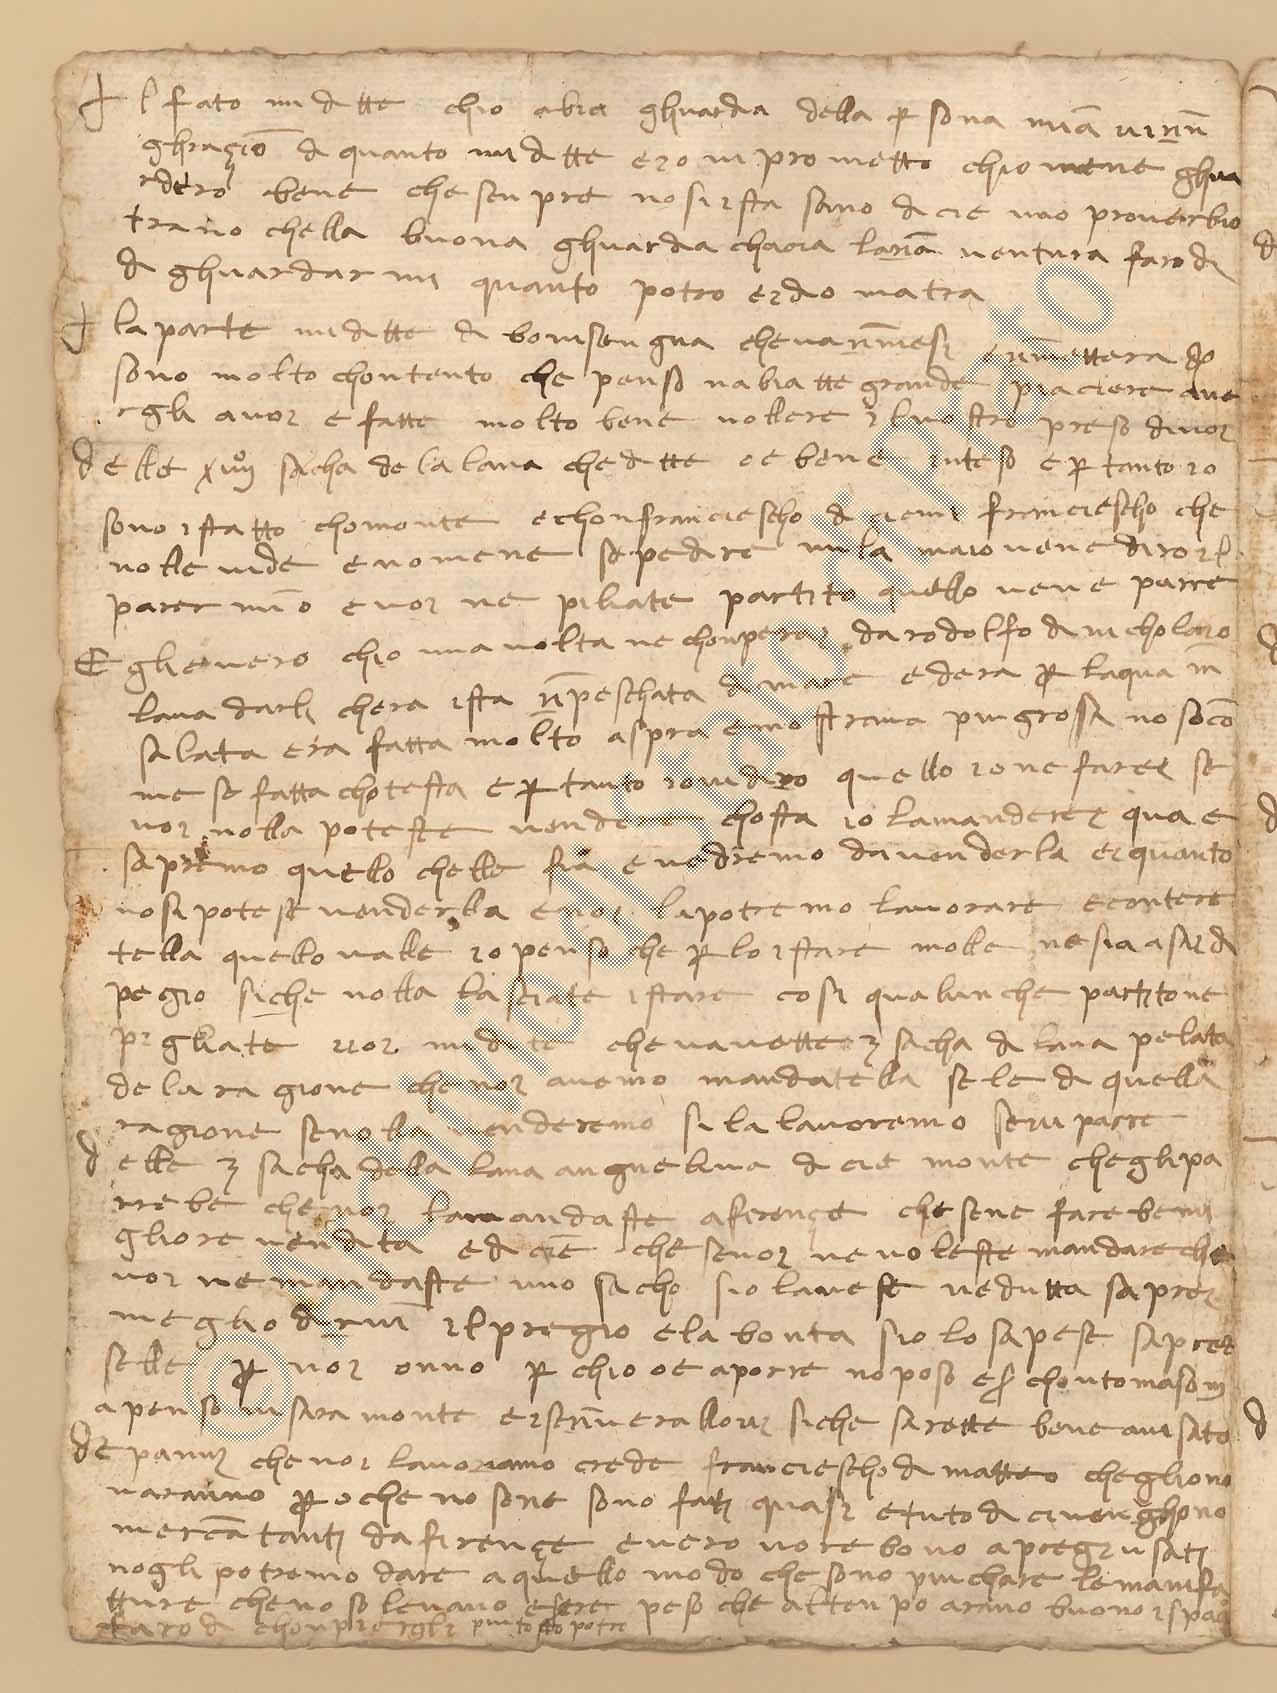 l fato mi ditte chio abia ghuardia della persona mia vi rin
ghrazio di quanto mi ditte ed io vi prometto chio mene ghua
rdero bene che senpre no si ista sano dicie uno proverbio
trano chella buona ghuardia chacia la ria ventura faro di
di ghuardarmi quanto potro ed io matra
la parte mi ditte di bonisengnia che va inn mesi e rimettera
sono molto chontento che penso n abiatte grande piaciere ave
rgli a voi e fatte molto bene vollere il vostro preso di voi
delle xviiii sacha de la lana che ditte oe bene inteso e per tanto io
sono istatto cho monte e chon franciescho di ciemi franciescho che
nolle vide e no mene sa pedire nulla ma io vene diro il
parer mio e voi ne piliate partito quello vene parre
Egli e vero chio una volta ne chonperai da rodolfo di nicholaio
lana d arli chera ista inpeschata di mare ed era per laqua in
salata era fatta molto aspra e mostrava piu grossa no so co
me se fatta chotesta e per tanto io vi diro quello io ne farei se
voi nolla poteste vendere chosta io la manderei qua e
sapremo quello chelle sia e vedremo da venderla e i quanto
no si potese venderlla e noi la potremo lavorare e contere
tella quello valle io penso che per lo istare molle ne sia asai di
pegio siche nolla lasciate istare cosi qualunche partito ne
pigliate voi mi dite che v avette 3 sacha di lana pelata
de la ragione che noi avemo mandatella se le di quella
ragione se nolla venderemo si la lavoremo se vi parre
delle 3 sacha della lana angnellina dicie monte che gli pa
rrebe che voi la mandaste a firençe che sene farebe mi
gliore vendita e dicie che se voi ne voleste mandare che
voi ne mandaste uno sacho s io l avese vedutta saprei
meglio dirvi il pregio e la bonta s io lo sapese saprei
selle per voi o nno per chio oe a porre no poso e chon tomaso m
a penso vi sara monte e i se inn vera lloui siche sarette bene avisato
de panni che noi lavoriamo crede franciescho di matteo che gli no
varanno pero che no sene sono fati quasi e tuto di ci venghono
mercatanti da firençe e vero vorebono a pregi usati
nogli potremo dare a quello modo che sono piu chare le manifa
tture che no solevano esere peso che atten po arano buono ispac
piu tosto potre